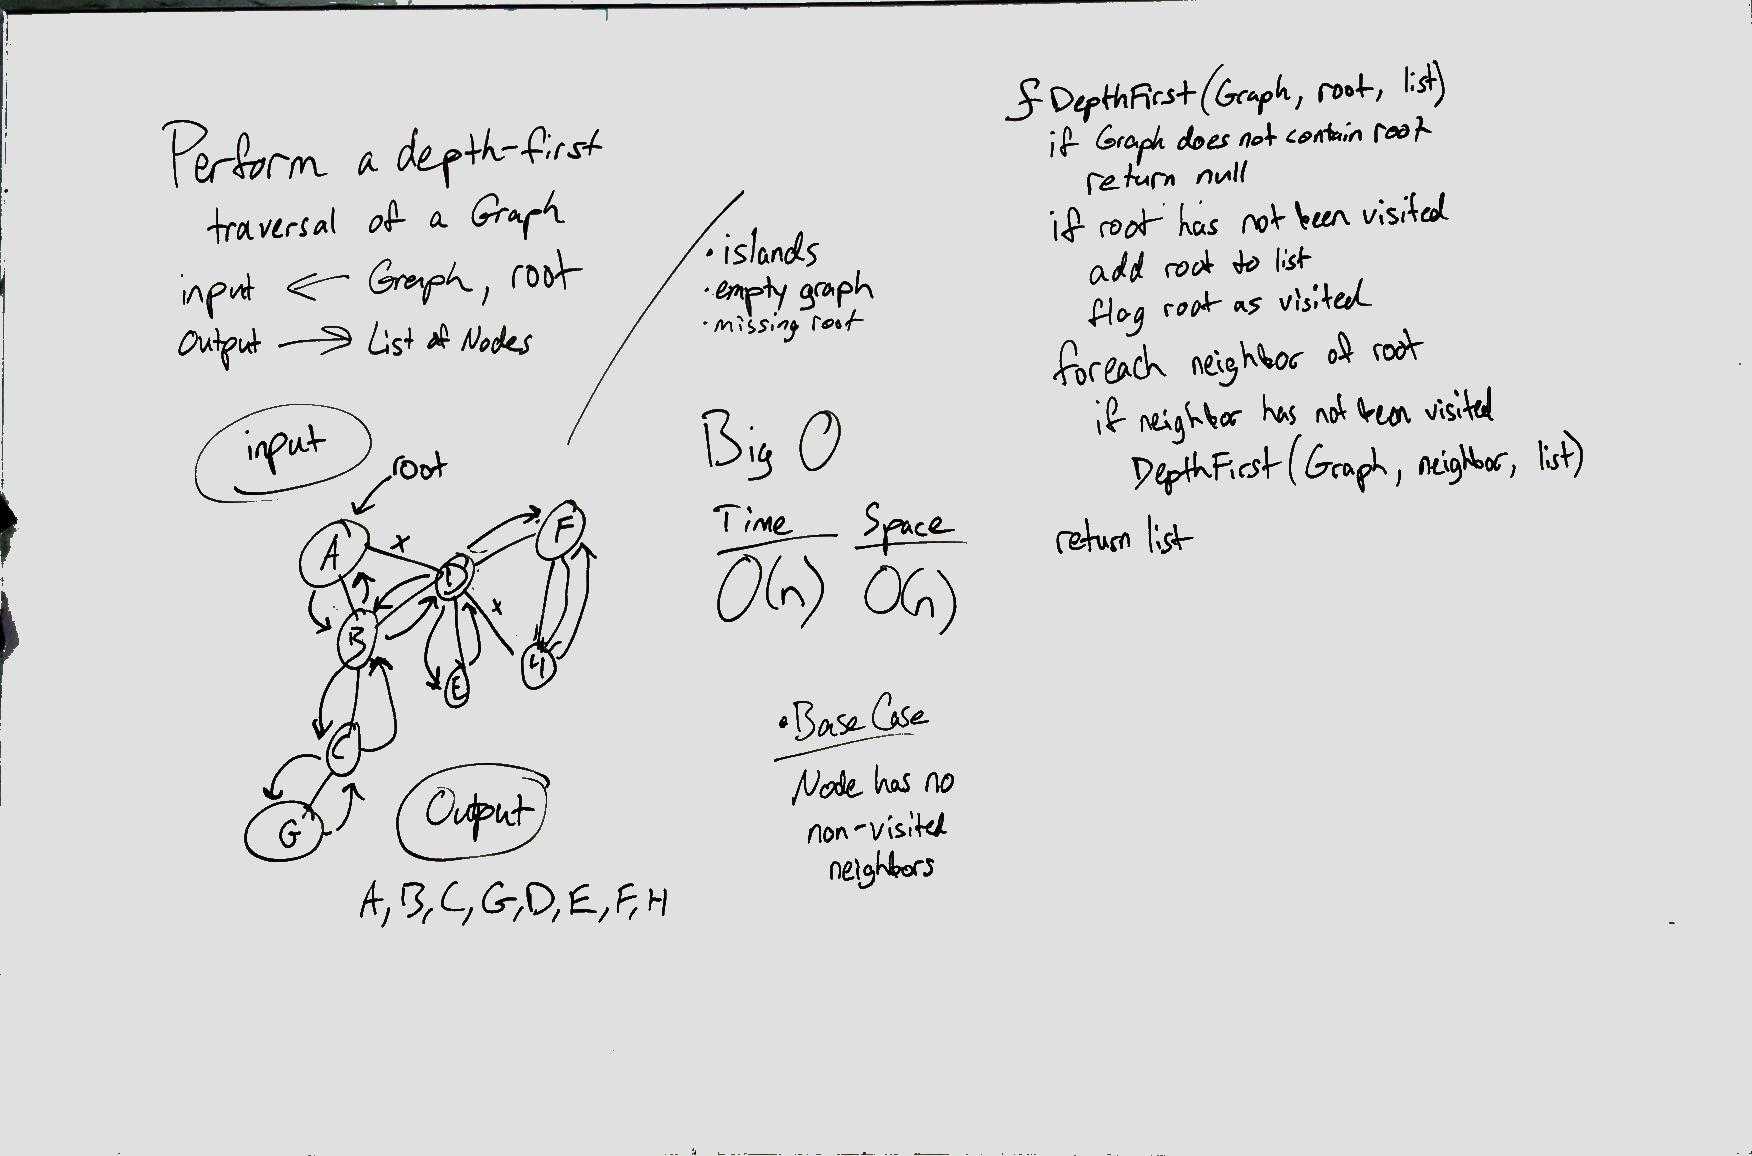 Perform a depth-first
traversal of a Graph
input ← Graph, root
Output → List of Nodes
input
root
A
x
D
F
B
x
E
H
C
G
Output
A, B, C, G, D, E, F, H
· islands
· empty graph
· missing root
Big O
Time Space
O(n) O(n)
· Base Case
Node has no
non-visited
neighbors
f DepthFirst(Graph, root, list)
if Graph does not contain root
return null
if root has not been visited
add root to list
flag root as visited
foreach neighbor of root
if neighbor has not been visited
DepthFirst(Graph, neighbor, list)
return list